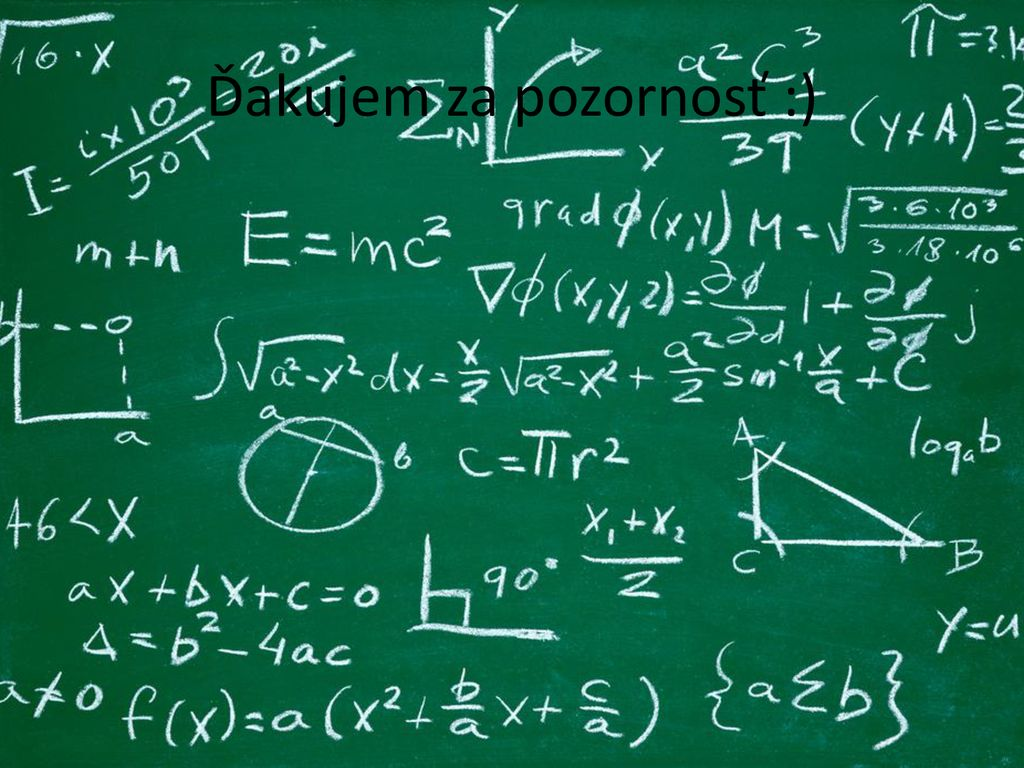 √16·x
20i
Ďakujem za pozornosť :)
I = i×10³/50T
Σ N
Y
X
a² C₁³ / 3T
π = 3.14
(Y+A) = 2/3
m+n
E = mc²
grad ϕ(x,y) M = √(3·6·10³ / 3·18·10⁶)
∇ϕ(x,y,z) = ∂ϕ/∂d i + ∂ϕ/∂d j
b
a
∫√a²-x² dx = x/2 √a²-x² + a²/2 sin⁻¹ x/a + C
a
b
c = πr²
A
C
B
logₐb
46 < X
x₁+x₂ / 2
ax + bx + c = 0
90°
Δ = b² - 4ac
a ≠ 0
f(x) = a(x² + b/a x + c/a)
{a Σ b}
y = u